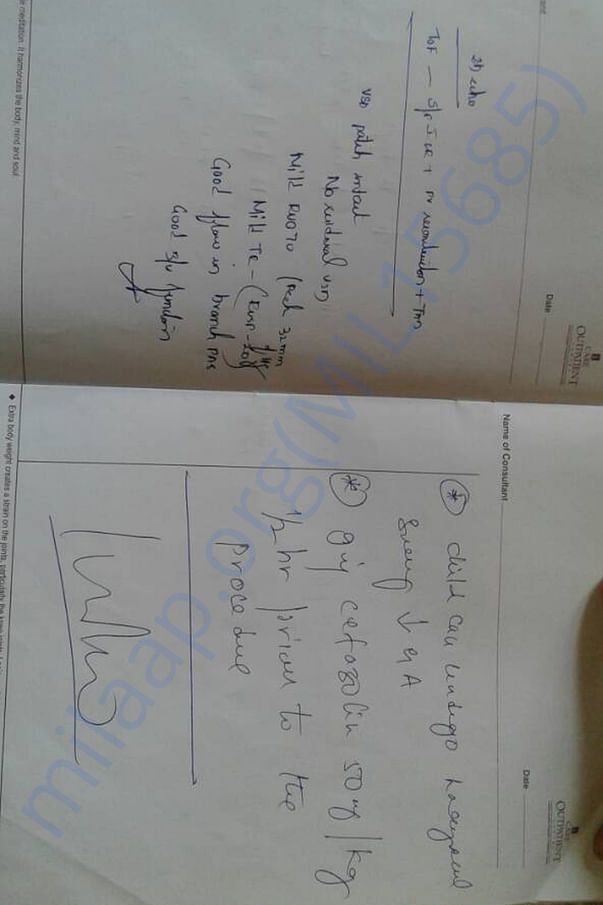 Date
CARE
OUTPATIENT
2D echo
TOF — S/P ICR + PV reconstruction + TAP
VSD patch intact
No residual VSD
Mild RVOTO (Peak 32mm
Mild TR - (
Good flow in branch PAs
Good B/V function
e meditation. It harmonizes the body, mind and soul
Name of Consultant
Date
CARE
OUTPATIENT
* child can undergo
↓ GA
* giv cefazolin 50 mg/kg
1/2 hr prior to the
procedure
◆ Extra body weight creates a strain on the joints, particularly the knee
milaap.org(MIL15685)